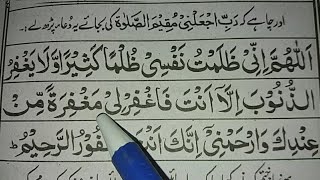 اور چاہے کہ رَبِّ اجْعَلْنِیْ مُقِیْمَ الصَّلٰوةِ کی بجائے یہ دعاء پڑھ لے:۔
اَللّٰهُمَّ اِنِّیْ ظَلَمْتُ نَفْسِیْ ظُلْمًا كَثِیْرًا وَّلَا یَغْفِرُ
الذُّنُوْبَ اِلَّا اَنْتَ فَاغْفِرْ لِیْ مَغْفِرَةً مِّنْ
عِنْدِكَ وَارْحَمْنِیْ اِنَّكَ اَنْتَ الْغَفُوْرُ الرَّحِیْمُ ؕ